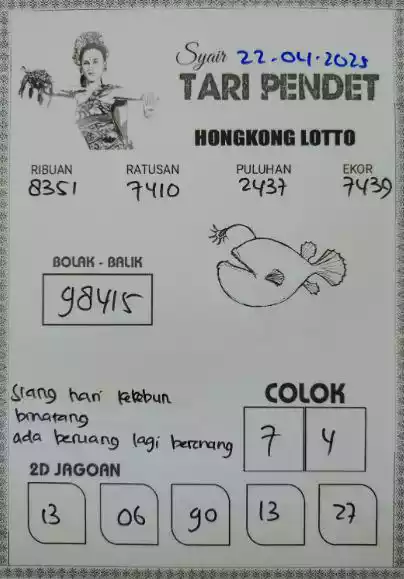 Syair 22-04-2025
TARI PENDET
HONGKONG LOTTO
RIBUAN RATUSAN PULUHAN EKOR
8351 7410 2437 7439
BOLAK - BALIK
98415
Siang hari kekebun
binatang
ada beruang lagi berenang
COLOK
7 4
2D JAGOAN
13 06 90 13 27